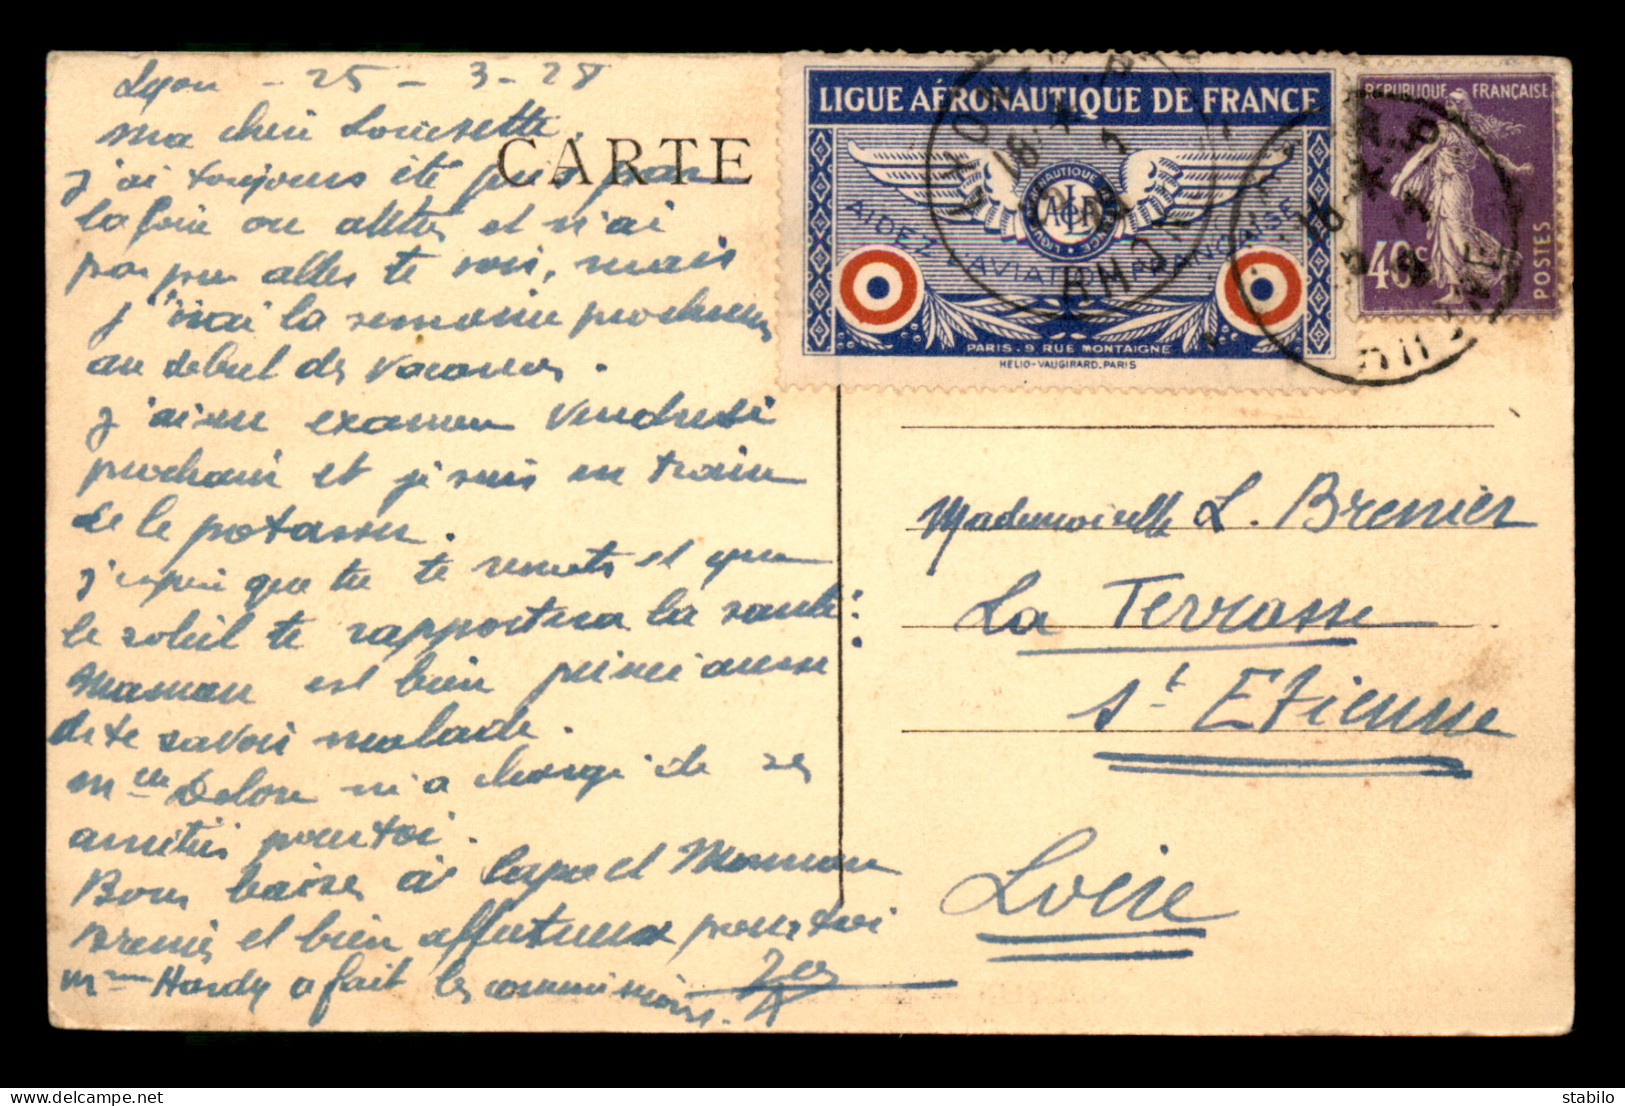 Lyon - 25 - 3 - 28
Ma cheri Louisette.
CARTE
j'ai toujours été pris par
la foire ou autre et n'ai
pas pu aller te voir, mais
j'irai la semaine prochaine
au debut des vacances.
j'ai un examen vendredi
prochain et je suis en train
de le potasser.
j'espère que tu te remets et que
le soleil te rapportera la santé.
Maman est bien peinée aussi
de te savoir malade.
Mme Delore m'a chargé de ses
amitiés pour toi.
Bons baisers à et Maman
Bremier et bien affectueux pour toi
Mme Hardy a fait les commissions.
LIGUE AÉRONAUTIQUE DE FRANCE
AIDEZ L'AVIATION FRANÇAISE
PARIS. 9 RUE MONTAIGNE
HELIO-VAUGIRARD. PARIS
LYON P.
RHONE
REPUBLIQUE FRANÇAISE
40c
POSTES
Mademoiselle L. Bremier
La Terrasse
St Etienne
Loire
stabilo
delcampe.net